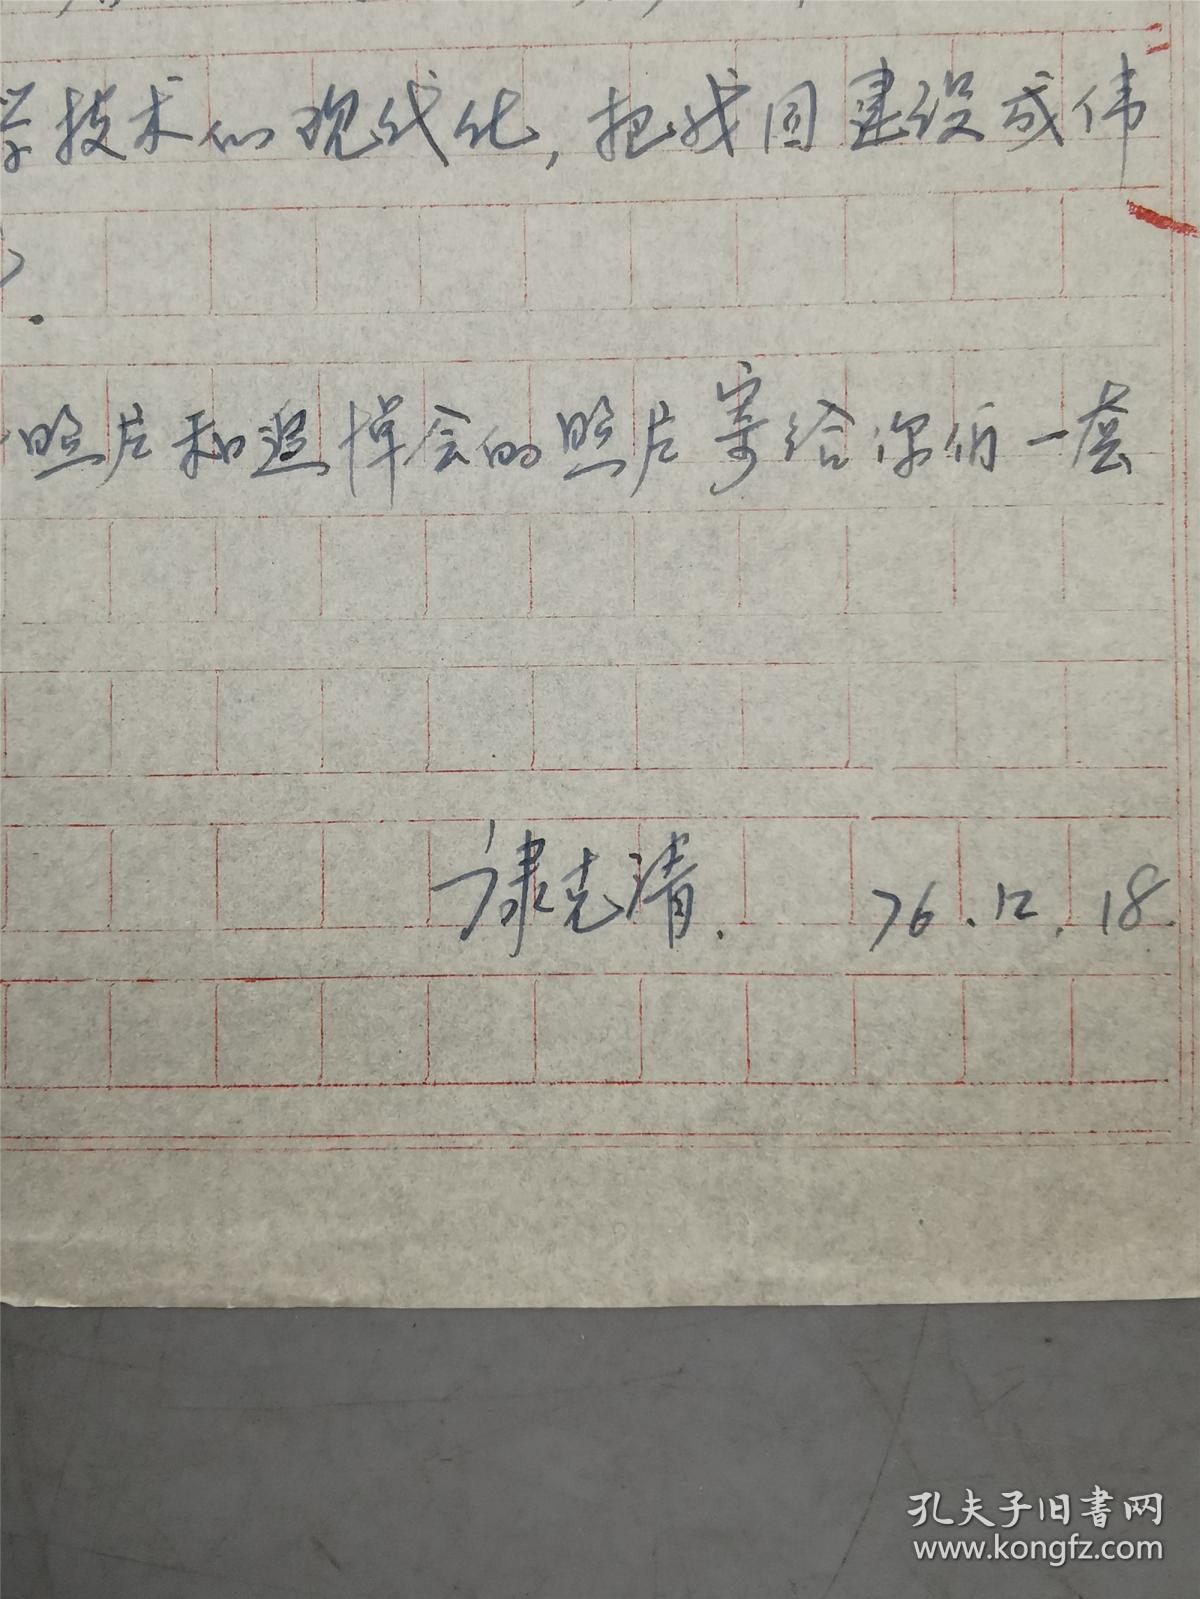 学技术的现代化,把我国建设成伟
照片和追悼会的照片寄给你们一套
康克清. 76.12.18.
孔夫子旧书网
www.kongfz.com